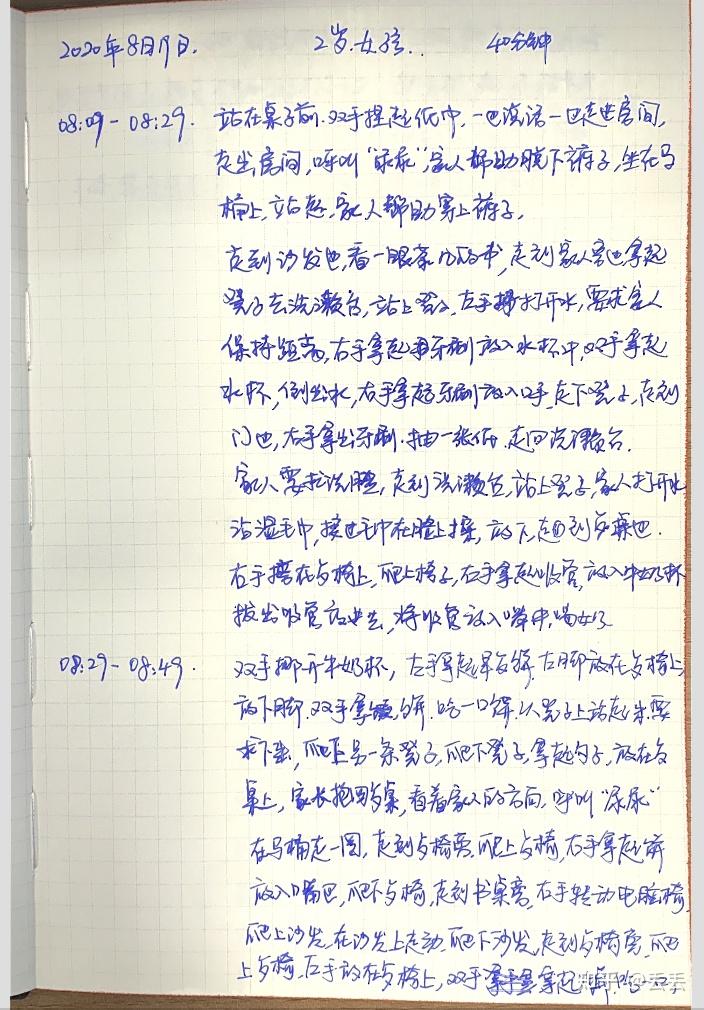 2020年8月19日. 2岁.女孩.. 40分钟
08:09-08:29. 站在桌子前.双手捏起纸巾,一边说话一边走进房间,
走出房间,呼叫“尿尿”,家人帮助脱下裤子,坐在马
桶上,站起,家人帮助穿上裤子.
走到沙发边,看一眼茶几的书,走到家人旁边,拿起
凳子去洗漱台,站上凳子,左手打开水,要求家人
保持距离,右手拿起牙刷放入水杯中,双手拿起
水杯,倒出水,右手拿起牙刷放入口中,走下凳子,走到
门边,右手拿出牙刷.抽一张纸.走回洗漱台.
家人要求洗脸,走到洗漱台,站上凳子,家人打开水
沾湿毛巾,接过毛巾在脸上擦,放下,走回到餐桌边.
右手撑在餐椅上,爬上椅子,右手拿起吸管,放入牛奶杯
拔出吸管放进去,将吸管放入嘴中,喝奶
08:29-08:49. 双手挪开牛奶杯,左手拿起早餐饼.右脚放在餐椅上
放下脚.双手拿饼.吃一口饼.从凳子上站起来.要
求下来,爬上另一条凳子,爬下凳子,拿起勺子,放在餐
桌上,家长抱回餐桌,看着家人的方向,呼叫“尿尿”
在马桶走一圈,走到餐椅旁.爬上餐椅,右手拿起饼
放入嘴巴,爬下餐椅,走到书桌旁,右手转动电脑椅,
爬上沙发,在沙发上走动.爬下沙发,走到餐椅旁,爬
上餐椅.左手放在餐椅上,双手拿起饼.吃一口,
知乎 @丢丢